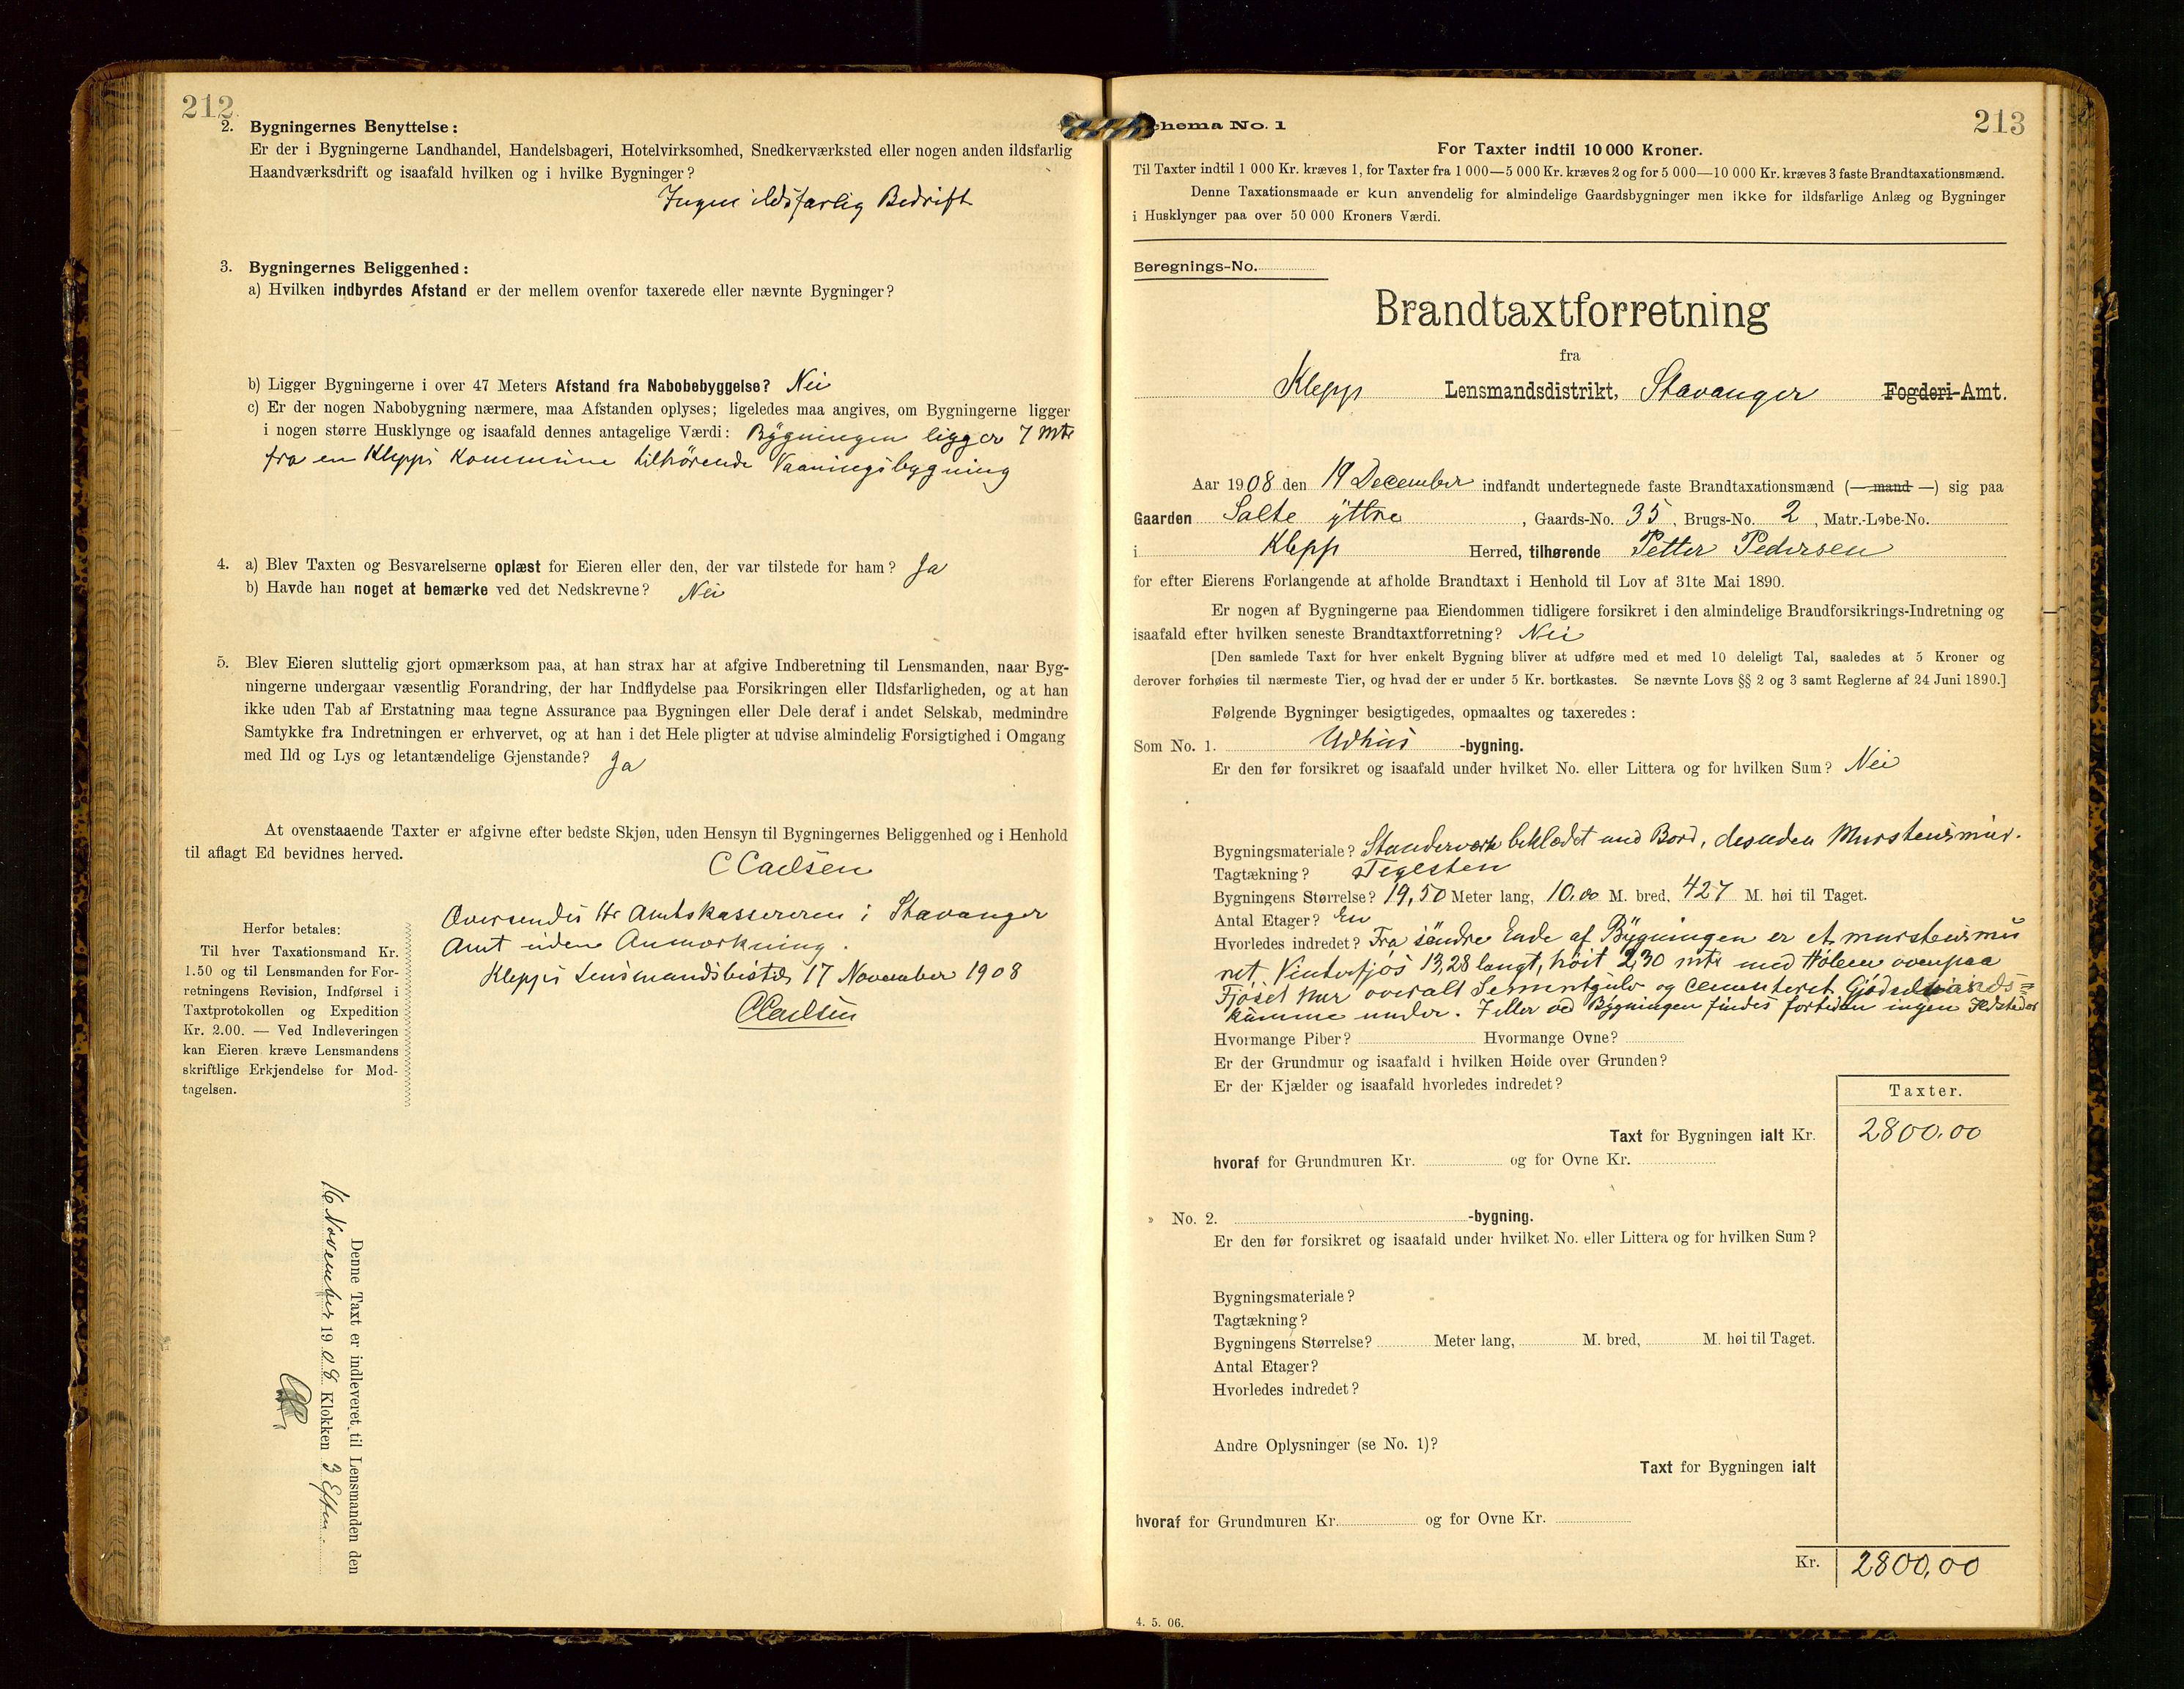 212
2. Bygningernes Benyttelse:
Er der i Bygningerne Landhandel, Handelsbageri, Hotelvirksomhed, Snedkerværksted eller nogen anden ildsfarlig
Haandværksdrift og isaafald hvilken og i hvilke Bygninger?
Ingen ildsfarlig Bedrift
3. Bygningernes Beliggenhed:
a) Hvilken indbyrdes Afstand er der mellem ovenfor taxerede eller nævnte Bygninger?
b) Ligger Bygningerne i over 47 Meters Afstand fra Nabobebyggelse? Nei
c) Er der nogen Nabobygning nærmere, maa Afstanden oplyses; ligeledes maa angives, om Bygningerne ligger
i nogen større Husklynge og isaafald dennes antagelige Værdi: Bygningen ligger 7 Mtr
fra en Klepps Kommune tilhørende Vaaningsbygning
4. a) Blev Taxten og Besvarelserne oplæst for Eieren eller den, der var tilstede for ham? Ja
b) Havde han noget at bemærke ved det Nedskrevne? Nei
5. Blev Eieren sluttelig gjort opmærksom paa, at han strax har at afgive Indberetning til Lensmanden, naar Byg-
ningerne undergaar væsentlig Forandring, der har Indflydelse paa Forsikringen eller Ildsfarligheden, og at han
ikke uden Tab af Erstatning maa tegne Assurance paa Bygningen eller Dele deraf i andet Selskab, medmindre
Samtykke fra Indretningen er erhvervet, og at han i det Hele pligter at udvise almindelig Forsigtighed i Omgang
med Ild og Lys og letantændelige Gjenstande? Ja
At ovenstaaende Taxter er afgivne efter bedste Skjøn, uden Hensyn til Bygningernes Beliggenhed og i Henhold
til aflagt Ed bevidnes herved.
C Carlsen
Oversendes Hr Amtskassereren i Stavanger
Amt uden Anmærkning.
Klepps Lensmandsbestil 17 November 1908
C Carlsen
Herfor betales:
Til hver Taxationsmand Kr.
1.50 og til Lensmanden for For-
retningens Revision, Indførsel i
Taxtprotokollen og Expedition
Kr. 2.00. — Ved Indleveringen
kan Eieren kræve Lensmandens
skriftlige Erkjendelse for Mod-
tagelsen.
Denne Taxt er indleveret til Lensmanden den
16 November 1908 Klokken 3 Efm.
213
Schema No. 1
For Taxter indtil 10 000 Kroner.
Til Taxter indtil 1 000 Kr. kræves 1, for Taxter fra 1 000—5 000 Kr. kræves 2 og for 5 000—10 000 Kr. kræves 3 faste Brandtaxationsmænd.
Denne Taxationsmaade er kun anvendelig for almindelige Gaardsbygninger men ikke for ildsfarlige Anlæg og Bygninger
i Husklynger paa over 50 000 Kroners Værdi.
Beregnings-No.
Brandtaxtforretning
fra
Klepp Lensmandsdistrikt, Stavanger Fogderi-Amt.
Aar 1908 den 19 December indfandt undertegnede faste Brandtaxationsmænd (— mand —) sig paa
Gaarden Salte yttre, Gaards-No. 35, Brugs-No. 2, Matr.-Løbe-No.
i Klepp Herred, tilhørende Petter Pedersen
for efter Eierens Forlangende at afholde Brandtaxt i Henhold til Lov af 31te Mai 1890.
Er nogen af Bygningerne paa Eiendommen tidligere forsikret i den almindelige Brandforsikrings-Indretning og
isaafald efter hvilken seneste Brandtaxtforretning? Nei
[Den samlede Taxt for hver enkelt Bygning bliver at udføre med et med 10 deleligt Tal, saaledes at 5 Kroner og
derover forhøies til nærmeste Tier, og hvad der er under 5 Kr. bortkastes. Se nævnte Lovs §§ 2 og 3 samt Reglerne af 24 Juni 1890.]
Følgende Bygninger besigtigedes, opmaaltes og taxeredes:
Som No. 1. Udhus -bygning.
Er den før forsikret og isaafald under hvilket No. eller Littera og for hvilken Sum? Nei
Bygningsmateriale? Standerværk beklædet med Bord, desuden Murstensmur.
Tagtækning? Teglsten
Bygningens Størrelse? 19,50 Meter lang, 10.00 M. bred, 427 M. høi til Taget.
Antal Etager? En
Hvorledes indredet? Fra søndre Ende af Bygningen er et murstensmu
ret Vinterfjøs 13,28 langt, høit 2,30 mtr med Hølem ovenpaa
Fjøset har overalt Sementgulv og Cementeret
kumme under. I eller ved Bygningen findes fortiden ingen Ildsteder
Hvormange Piber? Hvormange Ovne?
Er der Grundmur og isaafald i hvilken Høide over Grunden?
Er der Kjælder og isaafald hvorledes indredet?
Taxter.
Taxt for Bygningen ialt Kr. 2800.00
hvoraf for Grundmuren Kr. og for Ovne Kr.
» No. 2. -bygning.
Er den før forsikret og isaafald under hvilket No. eller Littera og for hvilken Sum?
Bygningsmateriale?
Tagtækning?
Bygningens Størrelse? Meter lang, M. bred, M. høi til Taget.
Antal Etager?
Hvorledes indredet?
Andre Oplysninger (se No. 1)?
Taxt for Bygningen ialt
hvoraf for Grundmuren Kr. og for Ovne Kr.
Kr. 2800,00
4. 5. 06.